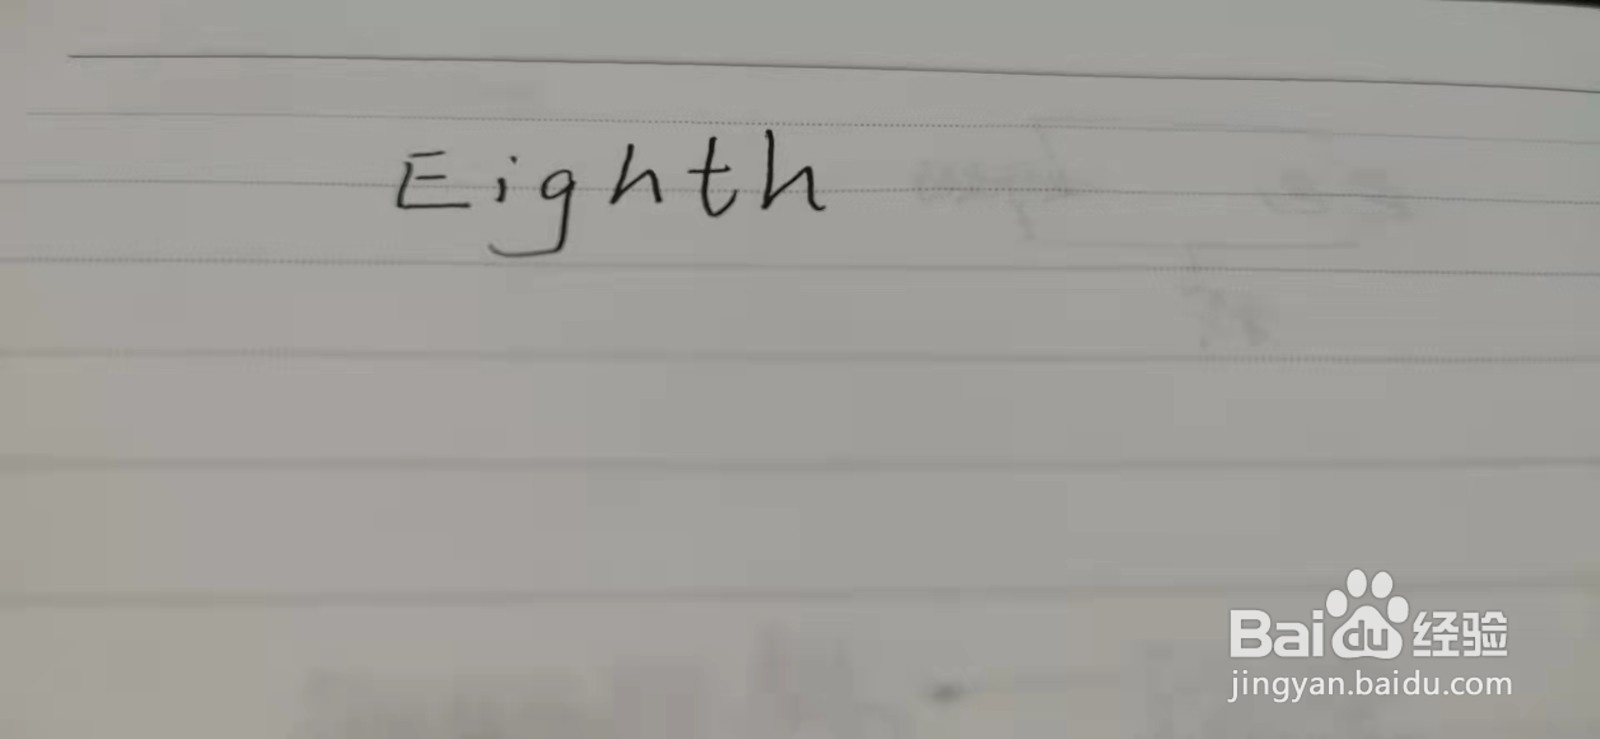 Eighth
Baidu经验
jingyan.baidu.com